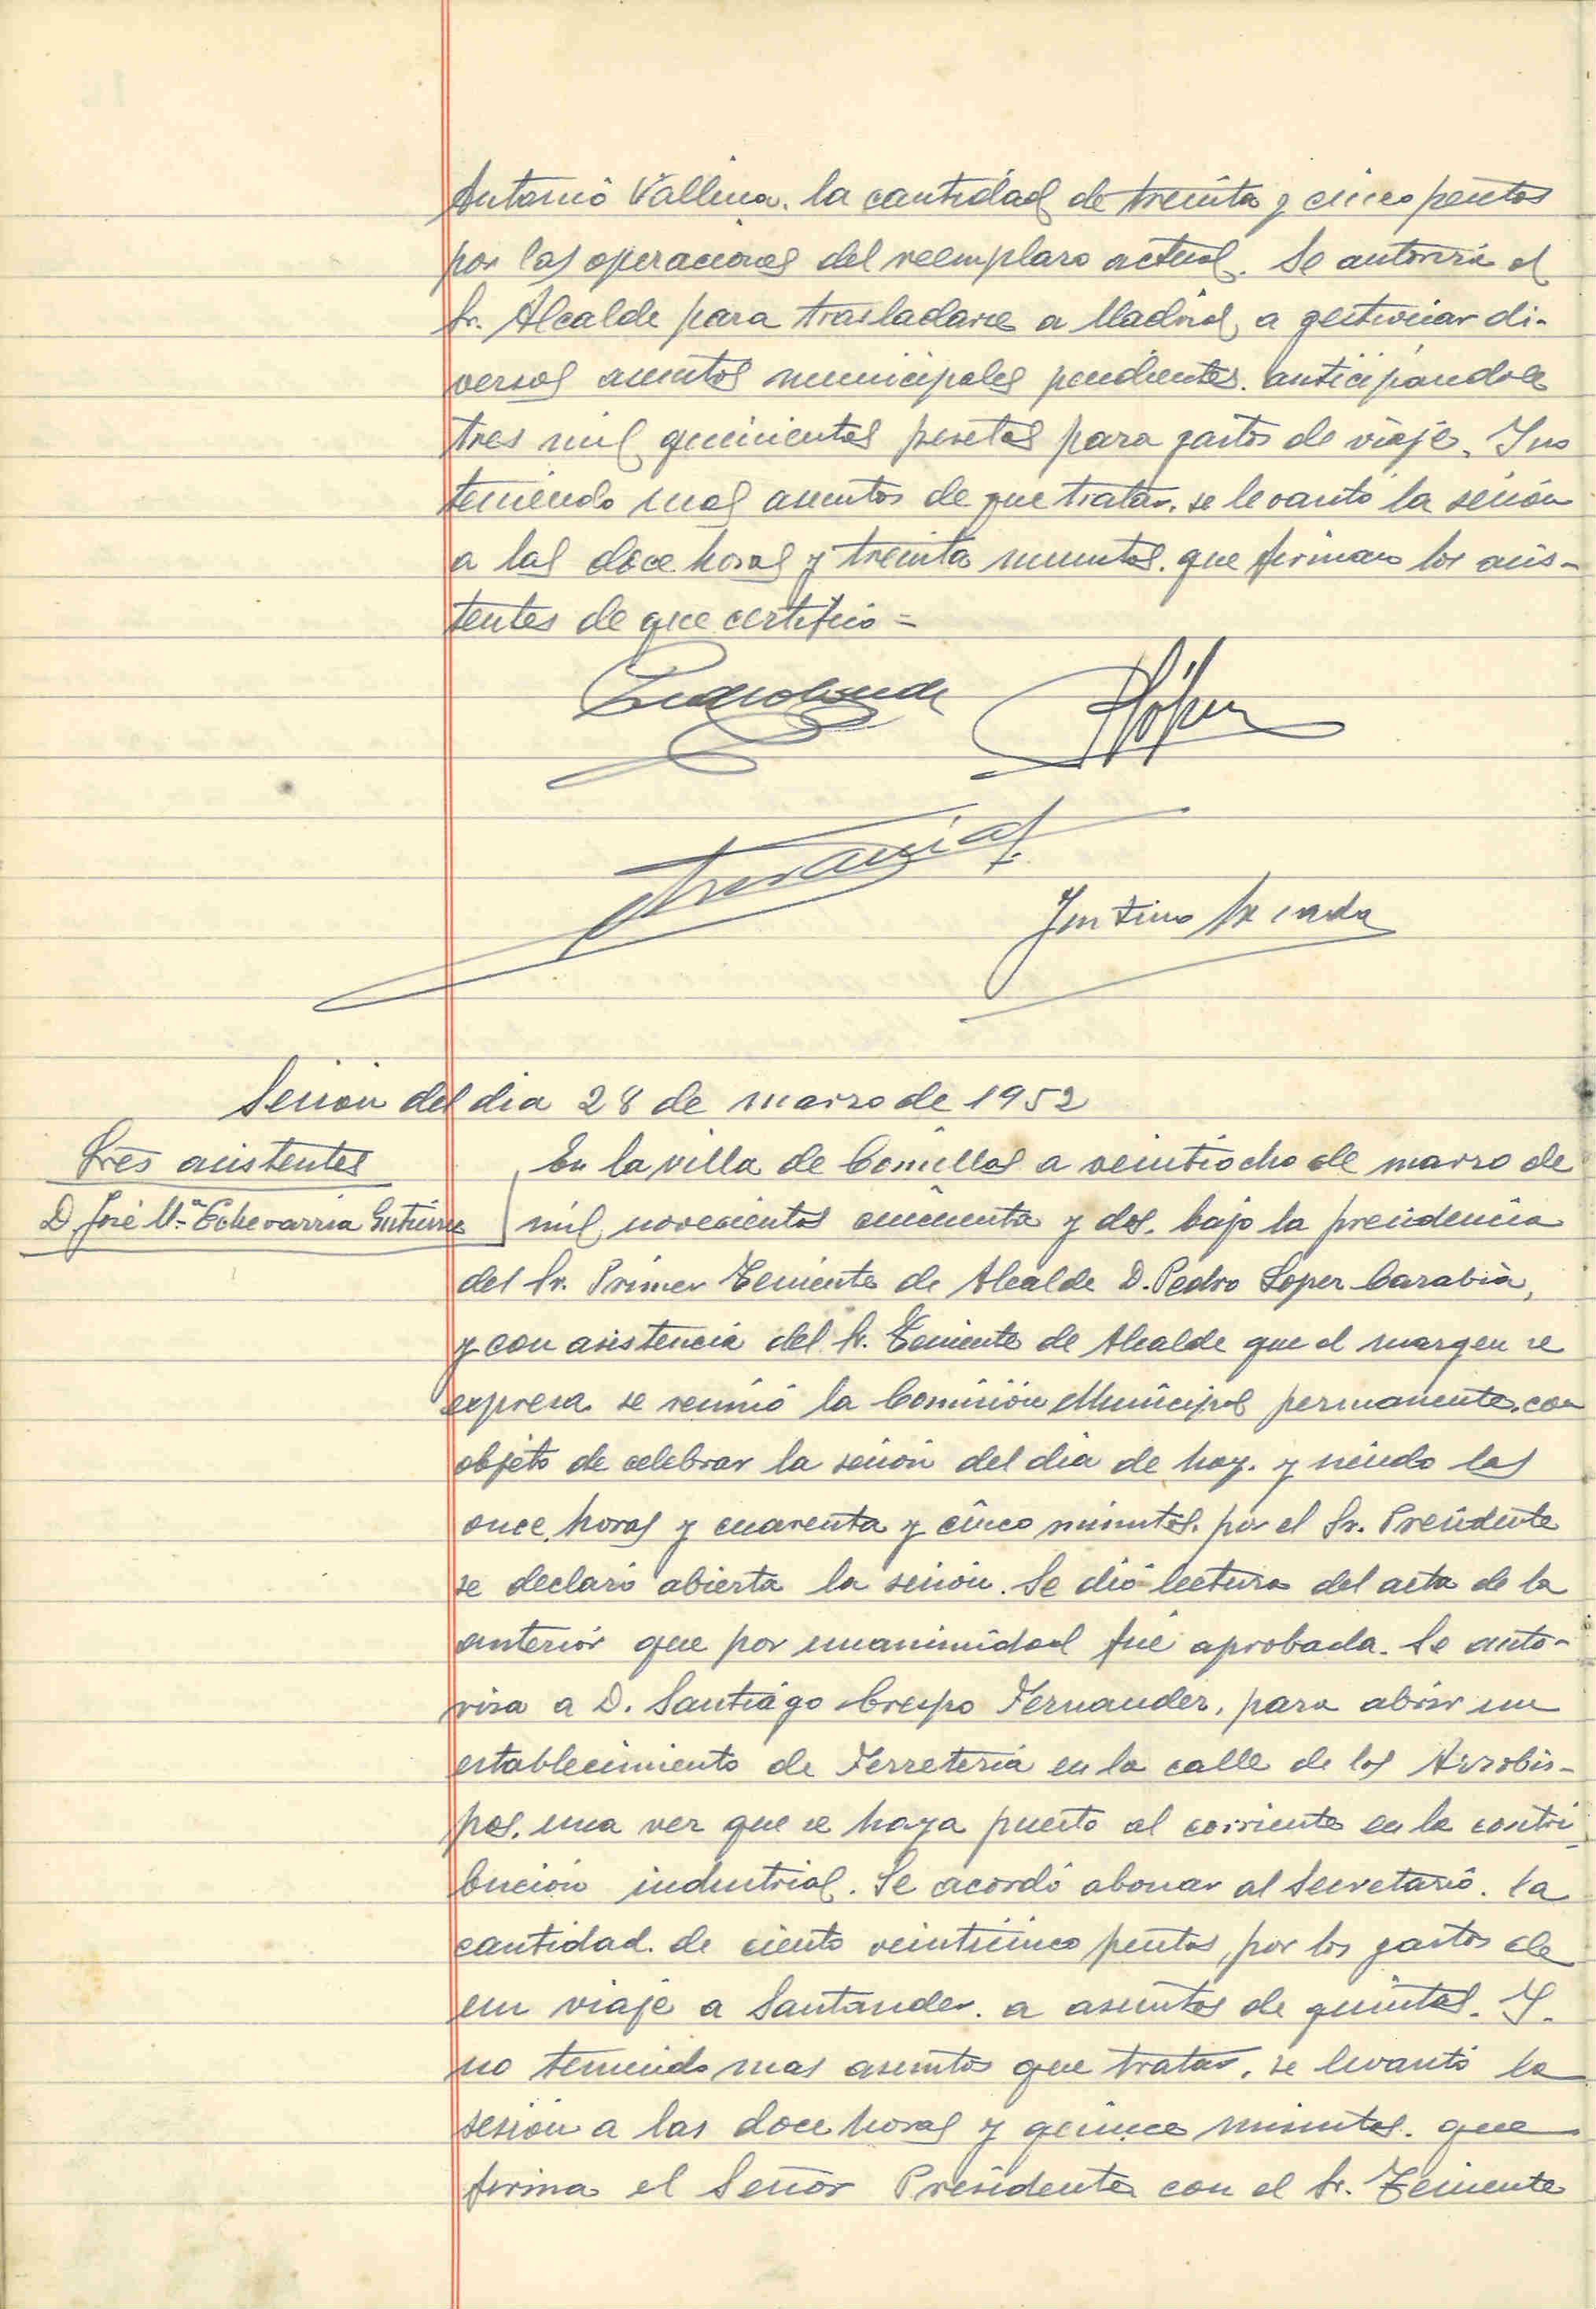 Antonio Vallina. la cantidad de treinta y cinco pesetas
por las operaciones del reemplazo actual. Se autoriza al
Sr. Alcalde para trasladarse a Madrid, a gestionar di-
versos asuntos municipales pendientes. anticipandole
tres mil quinientas pesetas para gastos de viaje. Y no
teniendo mas asuntos de que tratar. se levantó la sesión
a las doce horas y treinta minutos. que firman los asis-
tentes de que certifico =
PLópez
Sesión del dia 28 de marzo de 1952
Sres asistentes
D. José Mª Echevarria Gutierrez
En la villa de Comillas a veintiocho de marzo de
mil novecientos cincuenta y dos. bajo la presidencia
del Sr. Primer Teniente de Alcalde D. Pedro Lopez Carabia,
y con asistencia del Sr. Teniente de Alcalde que al margen se
expresa se reunió la Comisión Municipal permanente. con
objeto de celebrar la sesión del dia de hoy. y siendo las
once horas y cuarenta y cinco minutos. por el Sr. Presidente
se declaró abierta la sesión. Se dió lectura del acta de la
anterior que por unanimidad fué aprobada. Se auto-
riza a D. Santiago Crespo Fernandez, para abrir un
establecimiento de Ferreteria en la calle de los Arzobis-
pos. una vez que se haya puesto al corriente en la contri-
bución industrial. Se acordó abonar al Secretario. la
cantidad. de ciento veinticinco pesetas, por los gastos de
un viaje a Santander. a asuntos de quintas. Y.
no teniendo mas asuntos que tratar, se levantó la
sesión a las doce horas y quince minutos. que
firma el Señor Presidente con el Sr. Teniente